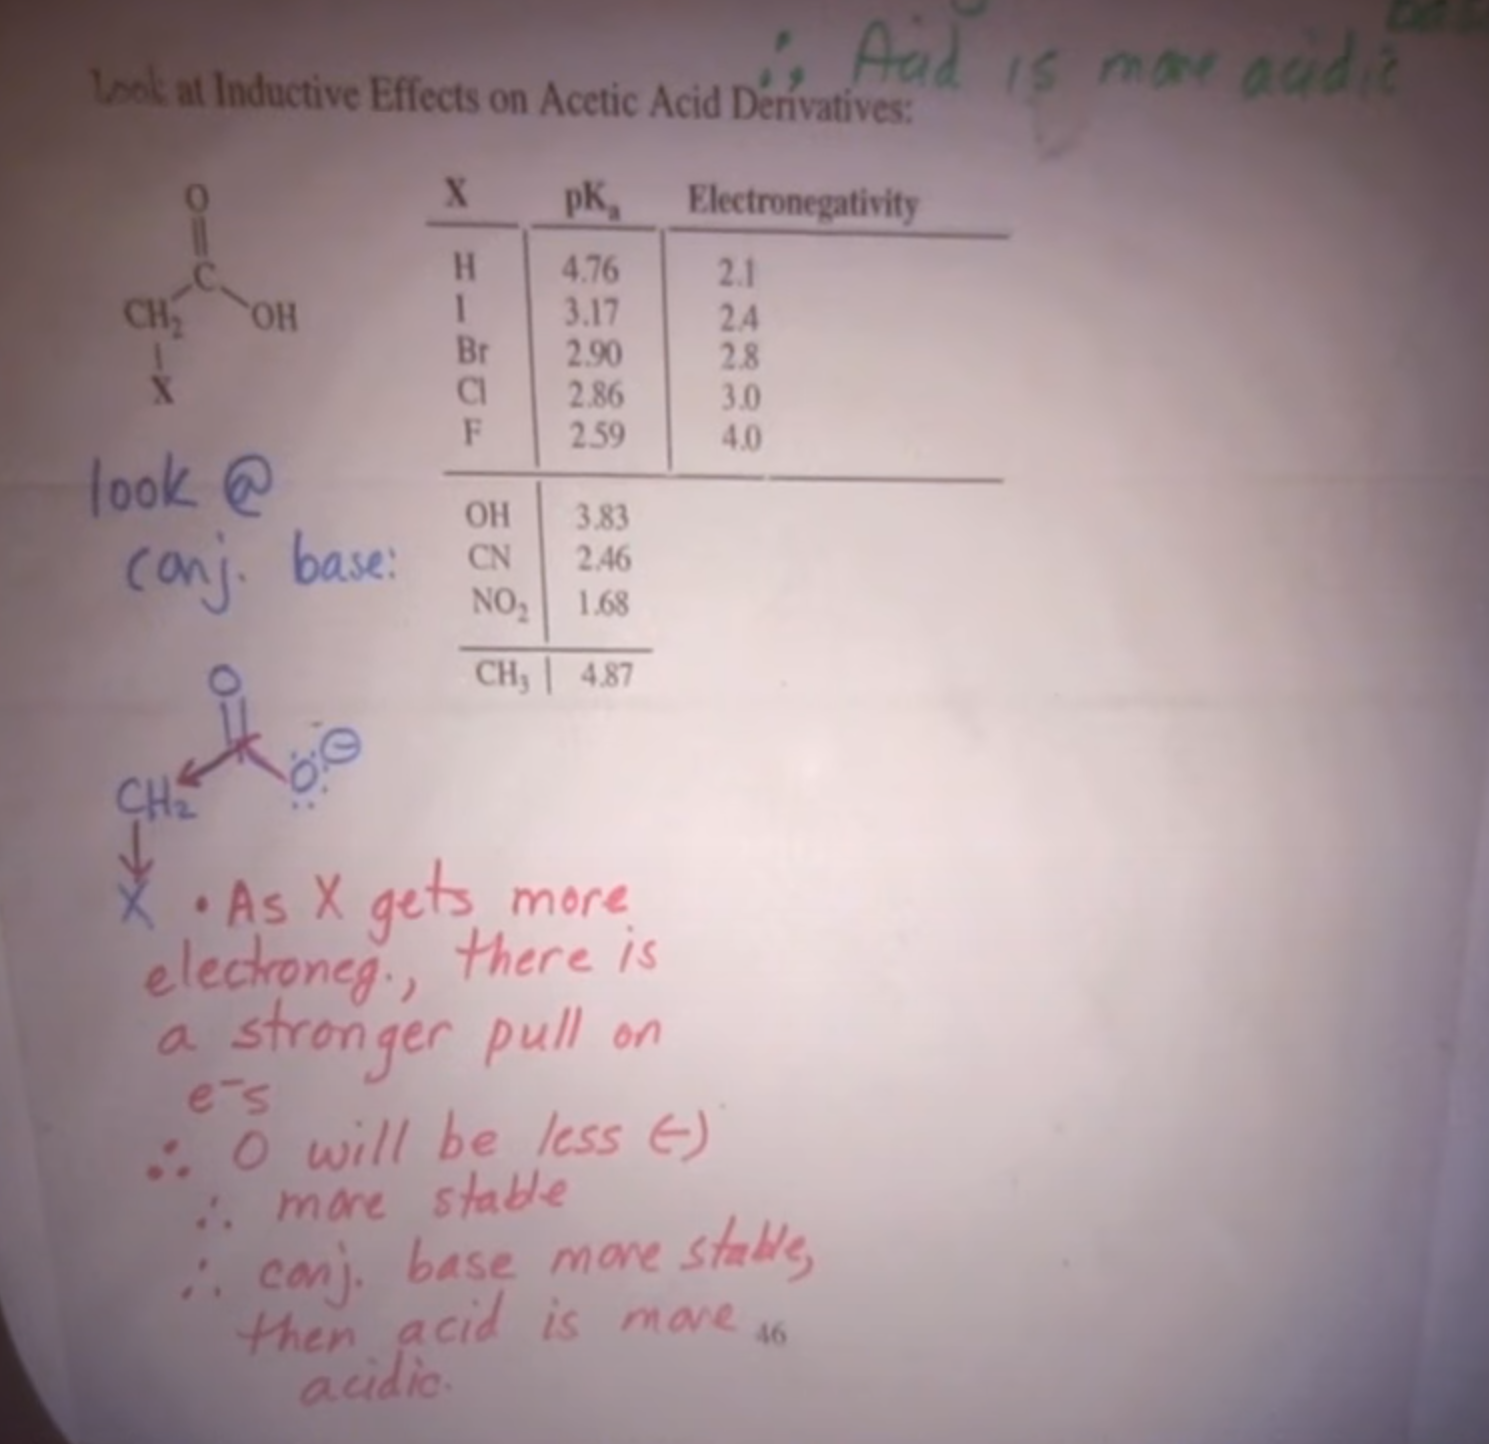 ∴ Acid is more acidic
Look at Inductive Effects on Acetic Acid Derivatives:
O
C
CH₂ OH
X
X pKₐ Electronegativity
H 4.76 2.1
I 3.17 2.4
Br 2.90 2.8
Cl 2.86 3.0
F 2.59 4.0
OH 3.83
CN 2.46
NO₂ 1.68
CH₃ 4.87
look @
conj. base:
O
CH₂ O ⊖
X • As X gets more
electroneg., there is
a stronger pull on
e⁻s
∴ O will be less (-)
∴ more stable
∴ conj. base more stable,
then acid is more
acidic.
46